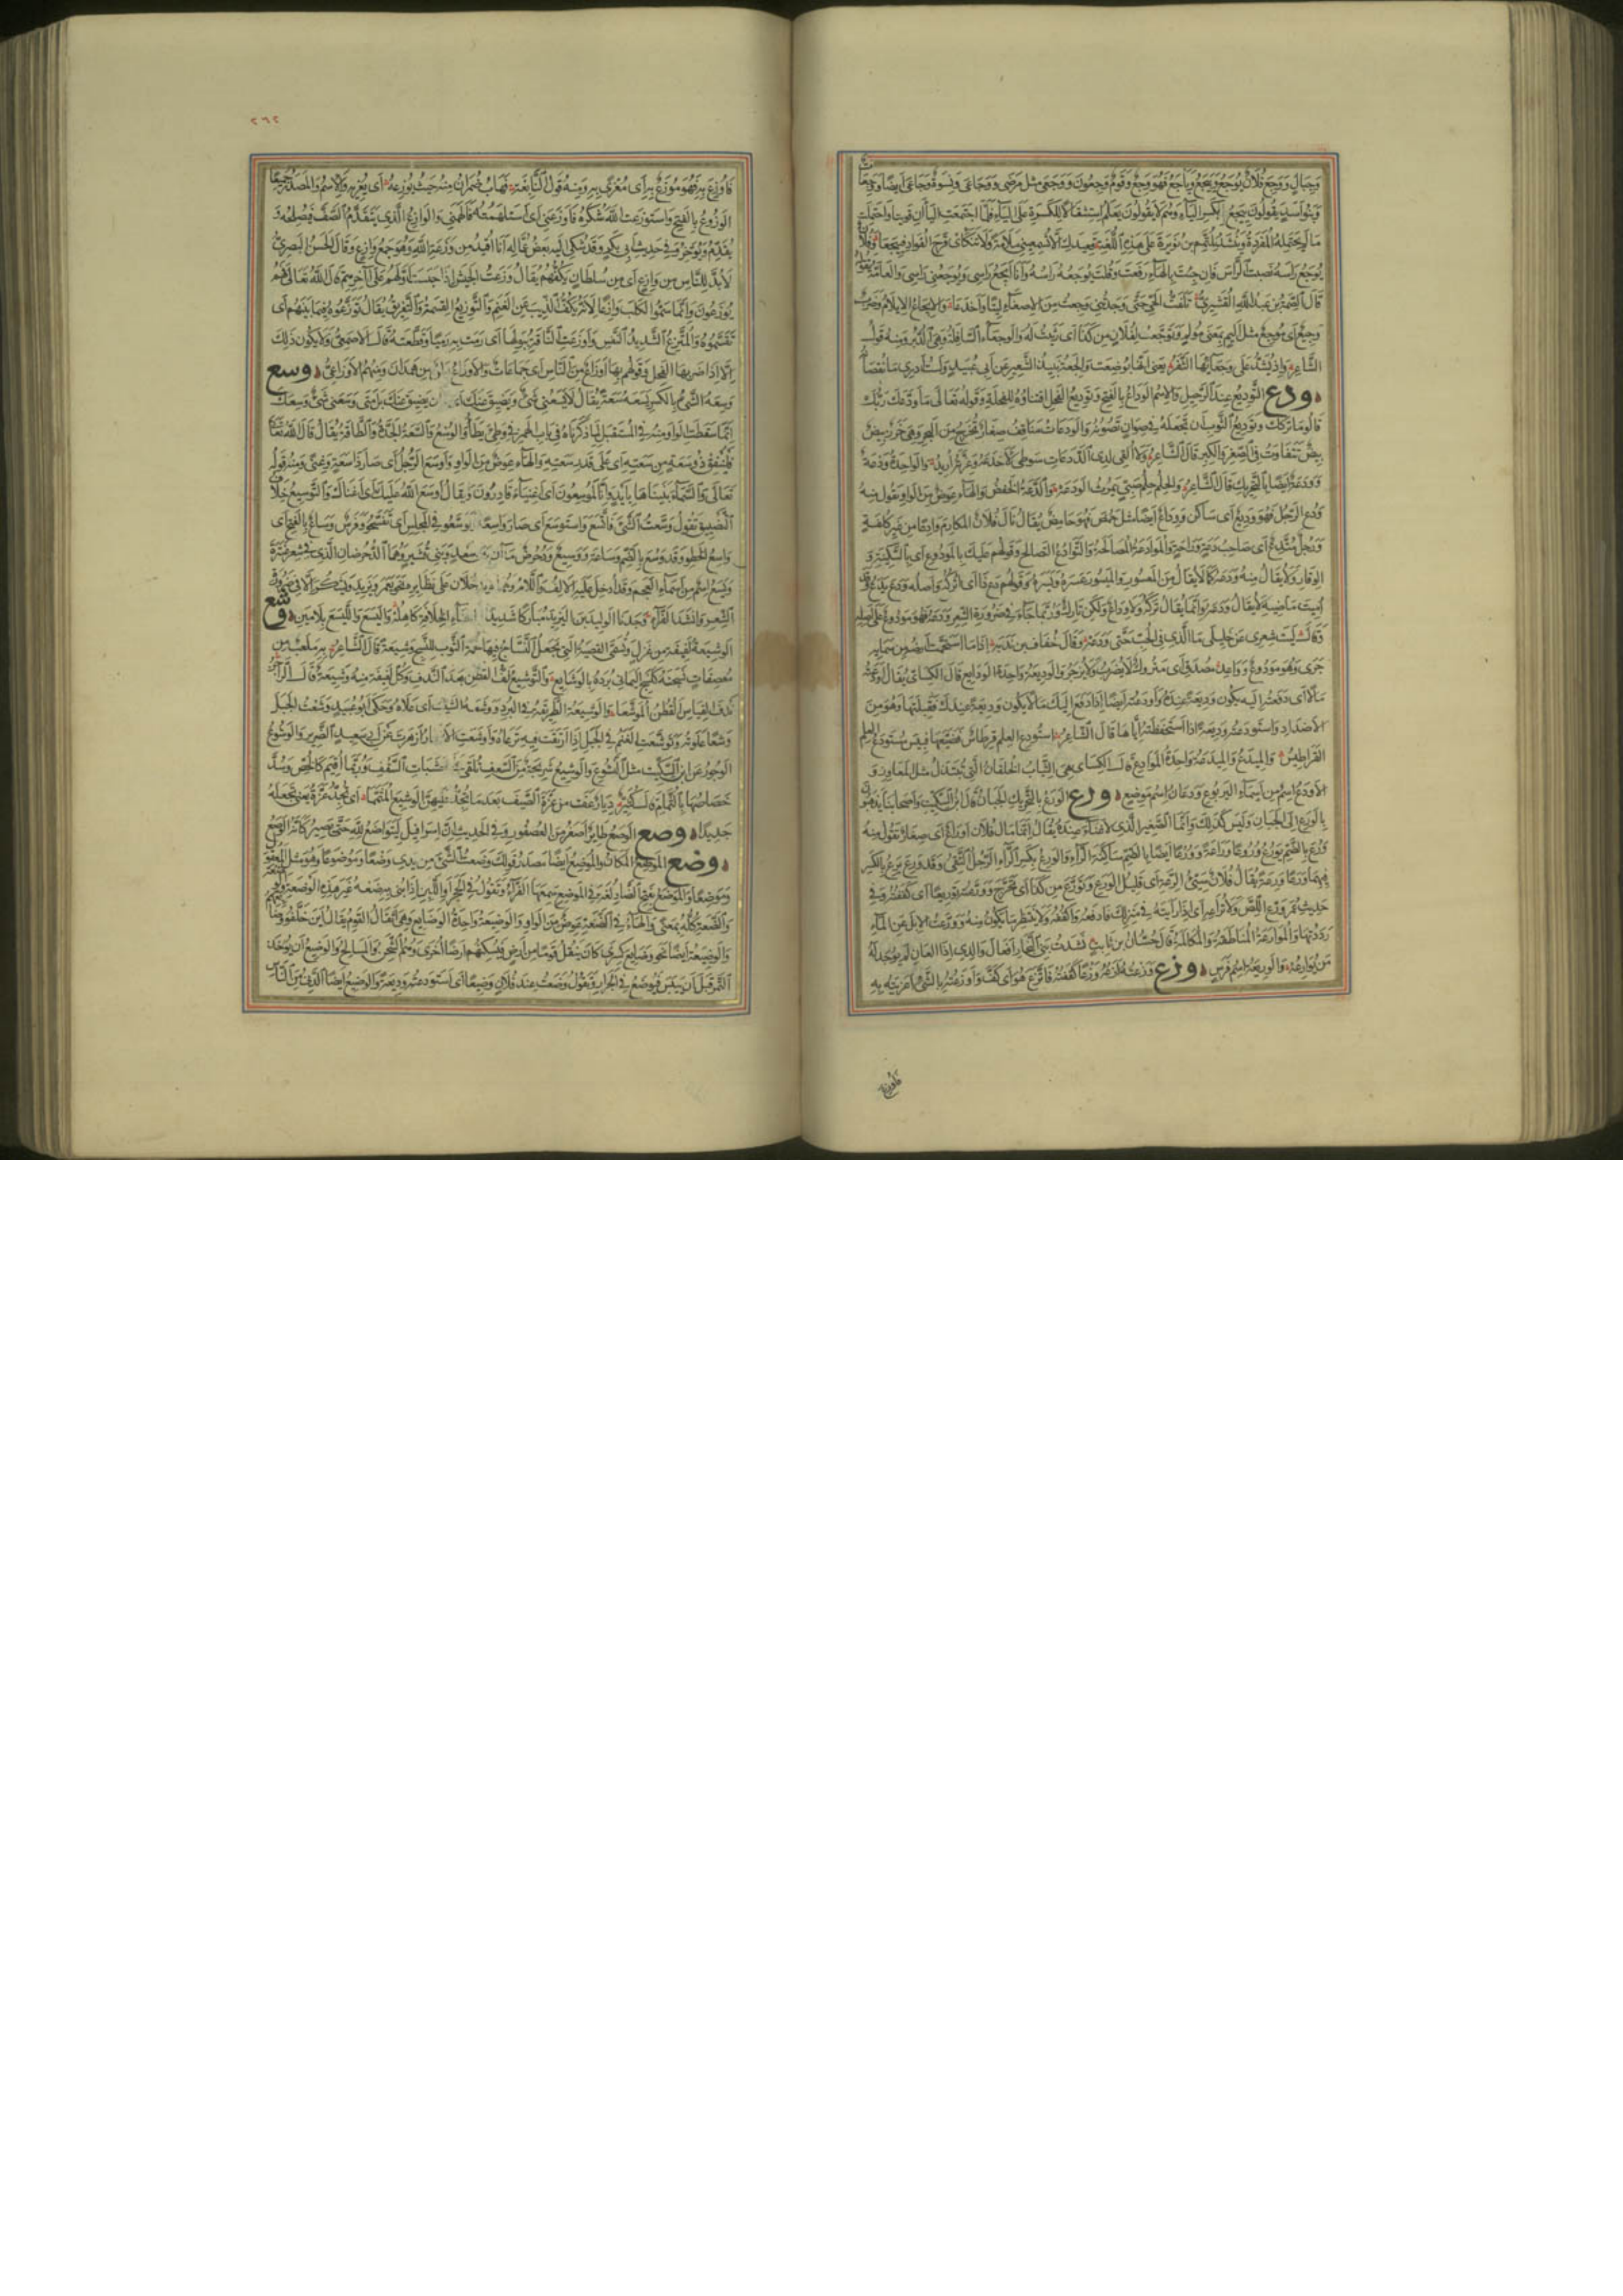 وجبال ووجع فلان يوجع وييجع وياجع فهو وجع وقوم وجعون ووجعى مثل مرضى ووجاعى ونسوة وجاعى ايضا وجعات
وبنو اسد يقولون ييجع بكسر الياء وهم لا يقولون يعلم استثقالا للكسرة على الياء فلما اجتمعت اليا آن قويتا واحتملت
ما لم تحتمله المفردة وينشد لمتمم بن نويرة على هذه اللغة قعيدك الا تسمعيني ملامة ولا تنكأى قرح الفواد فييجعا وفلان
يوجع راسه نصبت الراس فان جئت بالهاء رفعت وقلت يوجعه راسه وانا ايجع راسى ويوجعنى راسى والعامة تقول
قال الصمة بن عبد الله القشيرى تلفت نحو الحى حتى وجدتنى وجعت من الاصغاء ليتا واخدعا والايجاع الايلام وضرب
وجيع اى موجع مثل اليم بمعنى مولم وتوجعت لفلان من كذا اى رثيت له والوجعاء السافلة وهى الدبر ومنه قول
الشاعر واذ يشد على وجعائها الثفر يعنى انها بوضعت والجعة نبيذ الشعير عن ابى عبيد ولست ادرى ما نقصانه
ودع التوديع عند الرحيل والاسم الوداع بالفتح وتوديع الفحل اقتناؤه للفحلة وقوله تعالى ما ودعك ربك
قالوا ما تركك وتوديع الثوب ان تجعله في صوان يصونه والودعات مناقف صغار تخرج من البحر وهى خرز بيض
تتفاوت في الصغر والكبر قال الشاعر ولا القى لذى الودعات سوطى لاخدعه وغرته اريد والواحدة ودعة
وودعة ايضا بالتحريك قال الشاعر والحلم حلم صبى يمرث الودعه والدعة الخفض والهاء عوض من الواو تقول منه
ودع الرجل فهو وديع اى ساكن ووادع ايضا مثل حمض فهو حامض يقال نال فلان المكارم وادعا من غير كلفة
ورجل متدع اى صاحب دعة وراحة والموادعة المصالحة والتوادع التصالح وقولهم عليك بالمودوع اى بالسكينة و
الوقار ولا يقال منه ودعه كما لا يقال من المعسور والميسور عسره ويسره وقولهم دع ذا اى اتركه واصله ودع يدع وقد
اميت ماضيه لا يقال ودعه وانما يقال تركه ولا وادع ولكن تارك وربما جاء في ضرورة الشعر ودعه فهو مودوع على اصله
وقال ليت شعرى عن خليلى ما الذى غاله في الحب حتى ودعه وقال خفاف بن ندبة اذا ما استحمت ارضه من سمائه
جرى وهو مودوع وواعد مصدق اى متروك لا يضرب ولا يزجر والوديعة واحدة الودايع قال الكسائى يقال اودعته
مالا اى دفعته اليه يكون وديعة عنده واودعته ايضا اذا دفع اليك مالا يكون وديعة عندك فقبلتها وهو من
الاضداد واستودعته وديعة اذا استحفظته اياها قال الشاعر استودع العلم قرطاس فضيعها فبئس مستودع العلم
القراطيس والميدع والميدعة واحدة الموادع قال الكسائى هى الثياب الخلقان التى تبتذل مثل المعاوز و
الاودع اسم من اسماء اليربوع وودعان اسم موضع ورع الورع بالتحريك الجبان قال ابن السكيت واصحابنا يذهبون
بالورع الى الجبان وليس كذلك وانما الصغير الذى لا غناء عنده يقال انما مال فلان اوراع اى صغار تقول منه
ورع بالضم يورع وروعا وراعة وورعا ايضا بالضم ساكنة الراء والورع بكسر الراء الرجل التقى وقد ورع يرع بالكسر
فيهما ورعا ورعة يقال فلان سيئ الرعة اى قليل الورع وتورع من كذا اى تحرج وورعته توريعا اى كففته وفى
حديث عمر ورع اللص ولا تراعه اى اذا رايته في منزلك فادفعه واكففه ولا تنتظر ما يكون منه وورعت الابل عن الماء
رددتها والموارعة المناطقة والمكالمة قال حسان بن ثابت نشدت بنى النجار افعال والدى اذا العان لم يوجد له
من يوارعه والوريعة اسم فرس وزع وزعته ازعه وزعا كففته فاتزع هو اى كف واوزعته بالشئ اغريته به
فاوزع
٢٦٢
فاوزع به فهو موزع به اى مغرى به ومنه قول النابغة فهاب ضمران منه حيث يوزعه اى يغريه والاسم والمصدر جميعا
الوزوع بالفتح واستوزعت الله شكره فاوزعنى اى استلهمته فالهمنى والوازع الذى يتقدم الصف فيصلحه و
يقدم ويوخر وفي حديث ابى بكر وقد شكى اليه بعض عماله انا اقيد من وزعة الله وهو جمع وازع وقال الحسن البصرى
لا بد للناس من وازع اى من سلطان يكفهم يقال وزعت الجيش اذا حبست اولهم على آخرهم قال الله تعالى فهم
يوزعون وانما سموا الكلب وازعا لانه يكف الذئب عن الغنم والتوزيع القسمة والتفريق يقال توزعوه فيما بينهم اى
تقسموه والمتزع الشديد النفس واوزعت الناقة ببولها اى رمت به رميا وقطعته قال الاصمعى ولا يكون ذلك
الا اذا ضربها الفحل وقولهم بها اوزاع من الناس اى جماعات والاوزاع بطن من همدان ومنهم الاوزاعى وسع
وسعه الشئ بالكسر يسعه سعة يقال لا يسعنى شئ ويضيق عنك اى وان يضيق عنك بل متى وسعنى شئ وسعك
انما سقطت الواو منه في المستقبل لما ذكرناه في باب الهمز في وطئ يطأ والوسع والسعة الجدة والطاقة يقال قال الله تعالى
لينفق ذو سعة من سعته اى على قدر سعته والهاء عوض من الواو واوسع الرجل اى صار ذا سعة وغنى ومنه قوله
تعالى والسماء بنيناها بايد وانا لموسعون اى اغنياء قادرون ويقال اوسع الله عليك اى اغناك والتوسيع خلاف
التضييق تقول وسعت الشئ فاتسع واستوسع اى صار واسعا وتوسعوا في المجلس اى تفسحوا وفرس وساع بالفتح اى
واسع الخطو وقد وسع بالضم وساعة ووسيع ودحرض ماآن بين سعد وبنى قشير وهما الدحرضان الذى في شعر عنترة
ويسع اسم من اسماء العجم وقد ادخل عليه الالف واللام وهما لا يدخلان على نظايره نحو يعمر ويزيد ويشكر الا في ضرورة
الشعر وانشد الفراء وجدنا الوليد بن اليزيد مباركا شديدا باعباء الخلافة كاهله واليسع والليسع بلامين وشع
الوشيعة لفيفة من غزل وتسمى القصبة التى يجعل النساج فيها لحمة الثوب للنسج وشيعة قال الشاعر به ملعب من
معصفات نسجنه كنسج اليمانى برده بالوشايع والتوشيع لف القطن بعد الندف وكل لفيفة منه وشيعة قال الراجز
ندف القياس القطن الموشعا والوشيعة الطريقة في البرد ووشعه الشيب اى علاه وحكى ابو عبيد وشعت الجبل
وشعا علوته وتوشعت الغنم في الجبل اذا ارتقت فيه ترعاه واوشعت الاشجار ازهرت عن ابى سعيد الضرير والوشوع
الوجور عن ابن السكيت مثل النشوع والوشيع شريجة من السعف تلقى على خشبات السقف وربما اقيم كالخص وسد
خصاصها بالثمام قال كثير ديار عفت من عزة الصيف بعد ما تجد عليهن الوشيع المثمما اى تجد عزة يعنى تجعله
جديدا وصع الوصع طاير اصغر من العصفور وفى الحديث ان اسرافيل ليتواضع لله حتى يصير كانه الوصع
وضع الموضع المكان والموضع ايضا مصدر قولك وضعت الشئ من يدى وضعا وموضوعا وهو مثل المعقول
وموضعا والموضع بفتح الضاد لغة في الموضع سمعها الفراء وتقول في الحجر واللبن اذا بنى به ضعه غير هذه الوضعة
والضعة كله بمعنى والهاء في الضعة عوض من الواو والوضيعة واحدة الوضايع وهى اثقال القوم يقال اين خلفوا وضايعهم
والوضيعة ايضا نحو وضايع كسرى كان ينقل قوما من ارض فيسكنهم ارضا اخرى وهم الشحن والمسالح والوضيع ان يوخذ
التمر قبل ان ييبس فيوضع في الجرار وتقول وضعت عند فلان وضيعا اى استودعته وديعة والوضيع ايضا الدنى من الناس